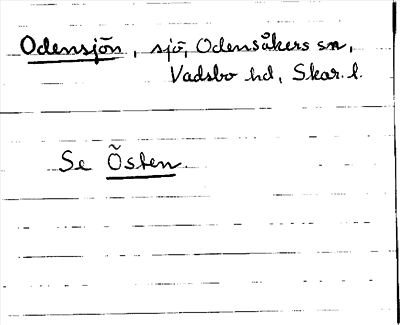 Odensjön, sjö, Odensåkers sn,
Vadsbo hd, Skar. l.
Se Östen